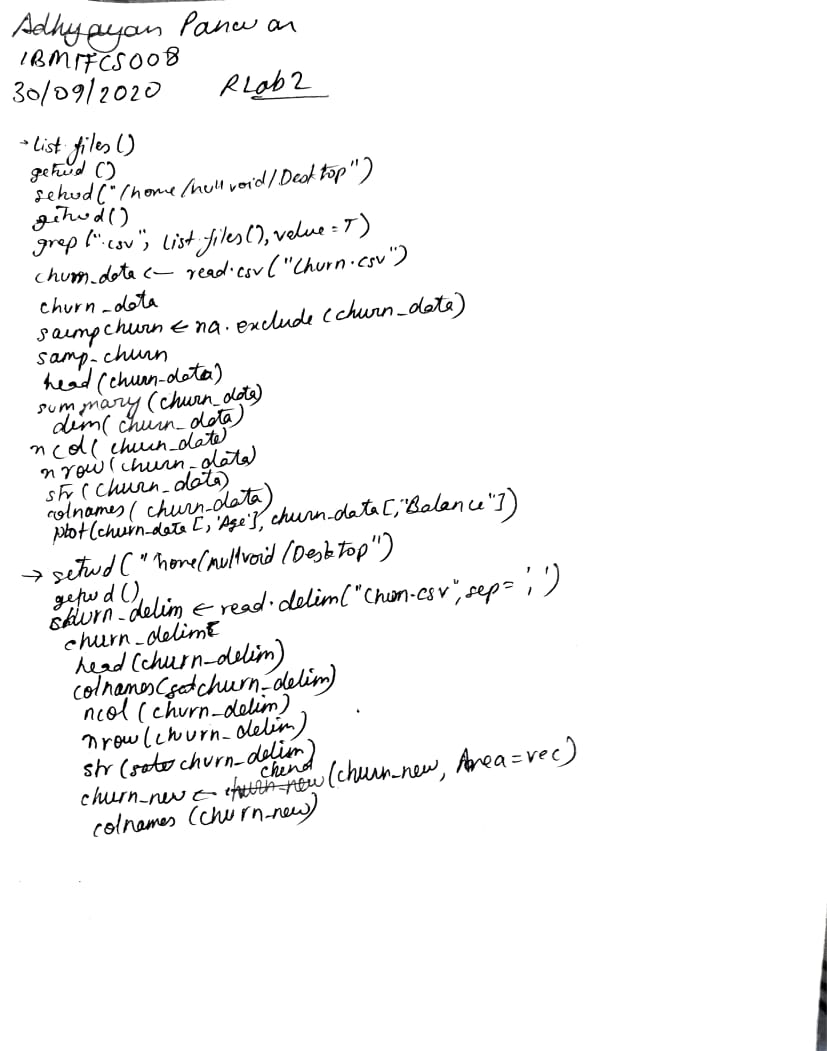 Adhyayan Panwar
1BM17CS008
30/09/2020 RLab2
→ list.files()
getwd()
setwd("/home/nullvoid/Desktop")
getwd()
grep(".csv", list.files(), value=T)
churn_data <- read.csv("Churn.csv")
churn_data
samp churn ← na.exclude (churn_data)
samp_churn
head (churn_data)
summary (churn_data)
dim( churn_data)
ncol( churn_data)
nrow (churn_data)
str (churn_data)
colnames( churn_data)
plot(churn_data [,'Age'], churn_data [,"Balance"])
→ setwd("home/nullvoid/Desktop")
getwd()
churn_delim ← read.delim("Churn.csv", sep=',')
churn_delim
head (churn_delim)
colnames(churn_delim)
ncol (churn_delim)
nrow (churn_delim)
str (churn_delim)
churn_new ← cbind (churn_new, Area=vec)
colnames (churn_new)